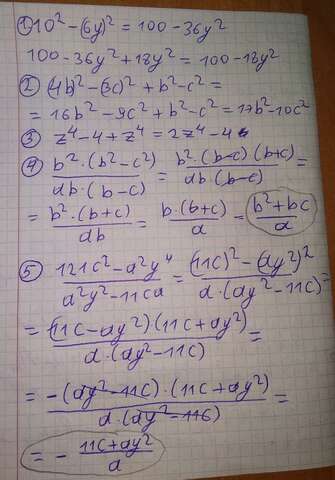 ① 10² - (6y)² = 100 - 36y²
100 - 36y² + 18y² = 100 - 18y²
② (4b)² - (3c)² + b² - c² =
= 16b² - 9c² + b² - c² = 17b² - 10c²
③ z⁴ - 4 + z⁴ = 2z⁴ - 4
④ b²·(b² - c²) / ab·(b - c) = b²·(b - c)(b + c) / ab(b - c) =
= b²·(b + c) / ab = b·(b + c) / a = b² + bc / a
⑤ 121c² - a²y⁴ / a²y² - 11ca = (11c)² - (ay²)² / a·(ay² - 11c) =
= (11c - ay²)(11c + ay²) / a·(ay² - 11c) =
= -(ay² - 11c)·(11c + ay²) / a·(ay² - 116) =
= - 11c + ay² / a